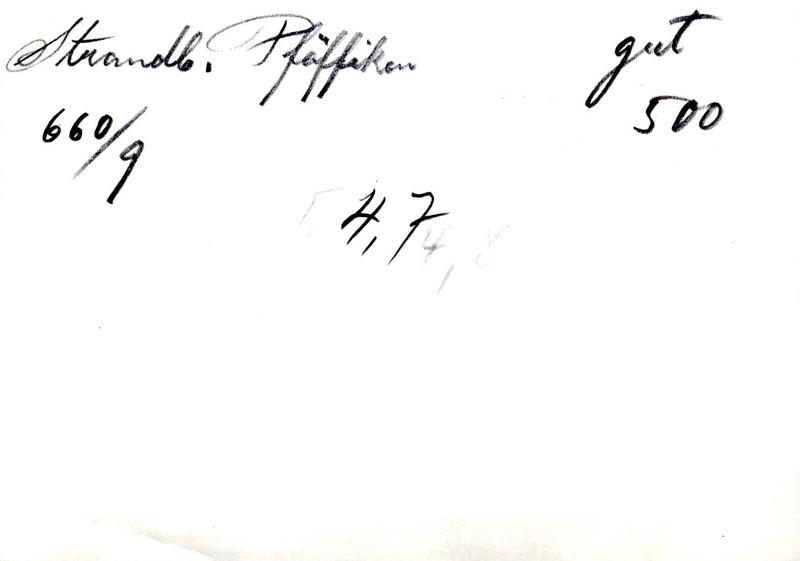 Strandb. Pfäffikon gut
660/9 500
4,7
4,8